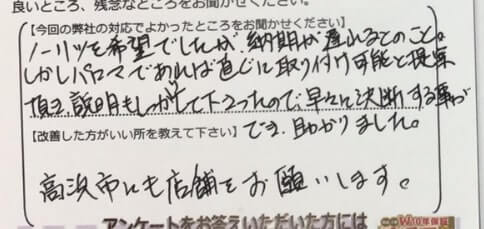 良いところ、残念なところをお聞かせください。
【今回の弊社の対応でよかったところをお聞かせください】
ノーリツを希望でしたが、納期が遅れるとのこと。
しかしパロマであれば直ぐに取り付け可能と提案
頂き、説明もしっかりして下さったので、早々に決断する事が
【改善した方がいい所を教えて下さい】でき、助かりました。
高浜市にも店舗をお願いします。
アンケートをお答えいただいた方には
W10年保証